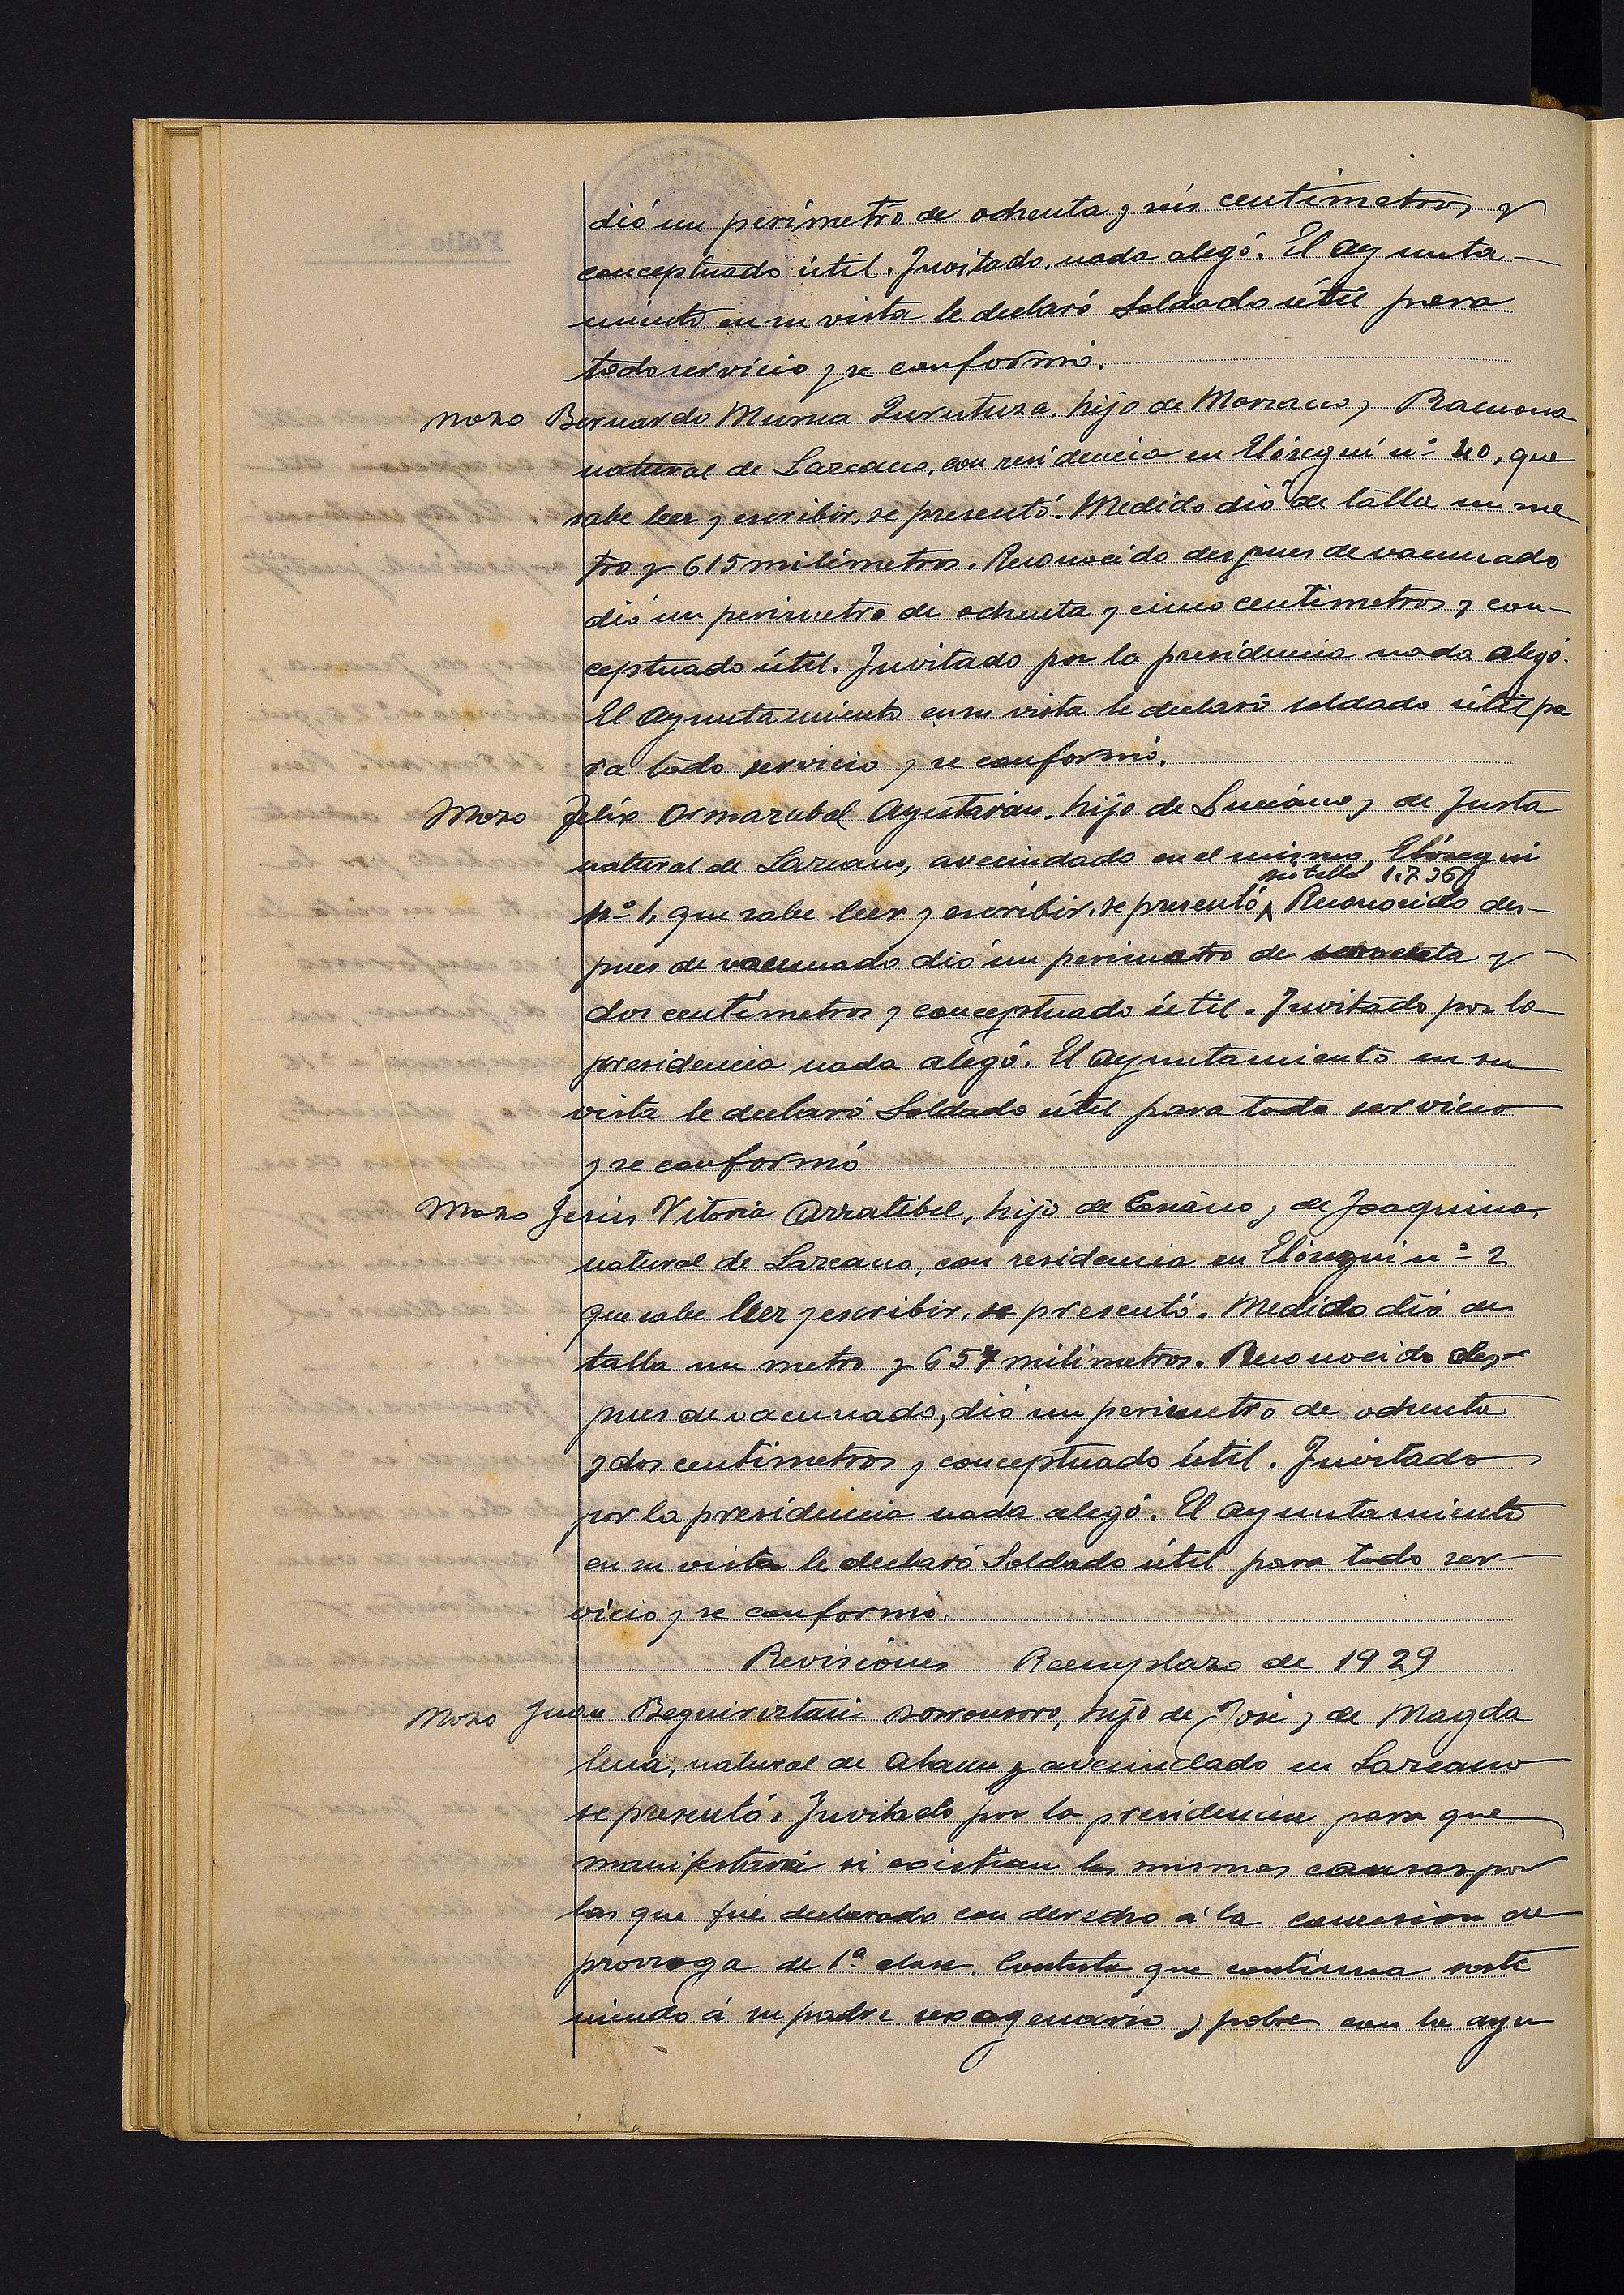 Folio
dió un perímetro de ochenta y seis centímetros y
conceptuado útil. Invitado nada alegó. El Ayunta-
miento en su vista le declaró Soldado útil para
todo servicio y se conformó.
Mozo Bernardo Murua Zurutuza, hijo de Marzano y Ramona
natural de Lazcano, con residencia en Elósegui nº 40, que
sabe leer y escribir, se presentó. Medido dió de talla un me
tro y 615 milímetros. Reconocido despues de vacunado
dió un perimetro de ochenta y cinco centimetros y con-
ceptuado útil. Invitado por la presidencia nada alegó.
El Ayuntamiento en su vista le declaró soldado útil pa
ra todo servicio y se conformó.
Mozo Félix Ormazabal Ayestarán, hijo de Luciano y de Justa
natural de Lazcano, avecindado en el mismo, Elósegui
talla 1.736
nº 1, que sabe leer y escribir, se presentó Reconocido des-
pues de vacunado dió un perimetro de y
dos centímetros y conceptuado útil. Invitado por la
presidencia nada alegó. El Ayuntamiento en su
vista le declaró Soldado útil para todo servicio
y se conformó
Mozo Jesús Vitoria Arratibel, hijo de Casiano y de Joaquina,
natural de Lazcano, con residencia en Elósegui nº 2
que sabe leer y escribir, se presentó. Medido dió de
talla un metro y 657 milímetros. Reconocido des-
pues de vacunado, dió un perimetro de ochenta
y dos centímetros y conceptuado útil. Invitado
por la presidencia nada alegó. El Ayuntamiento
en su vista le declaró Soldado útil para todo ser-
vicio y se conformó.
Revisiónes Reemplazo de 1929
Mozo Juan Beguiristain Sorronsoro, hijo de José y de Magda
lena, natural de Ataun y avecindado en Lazcano
se presentó. Invitado por la presidencia para que
manifestará si existian las mismas causas por
las que fué declarado con derecho á la concesion de
prorroga de 1ª clase. Contesta que continua soste
niendo á su padre sexagenario y pobre con la ayu